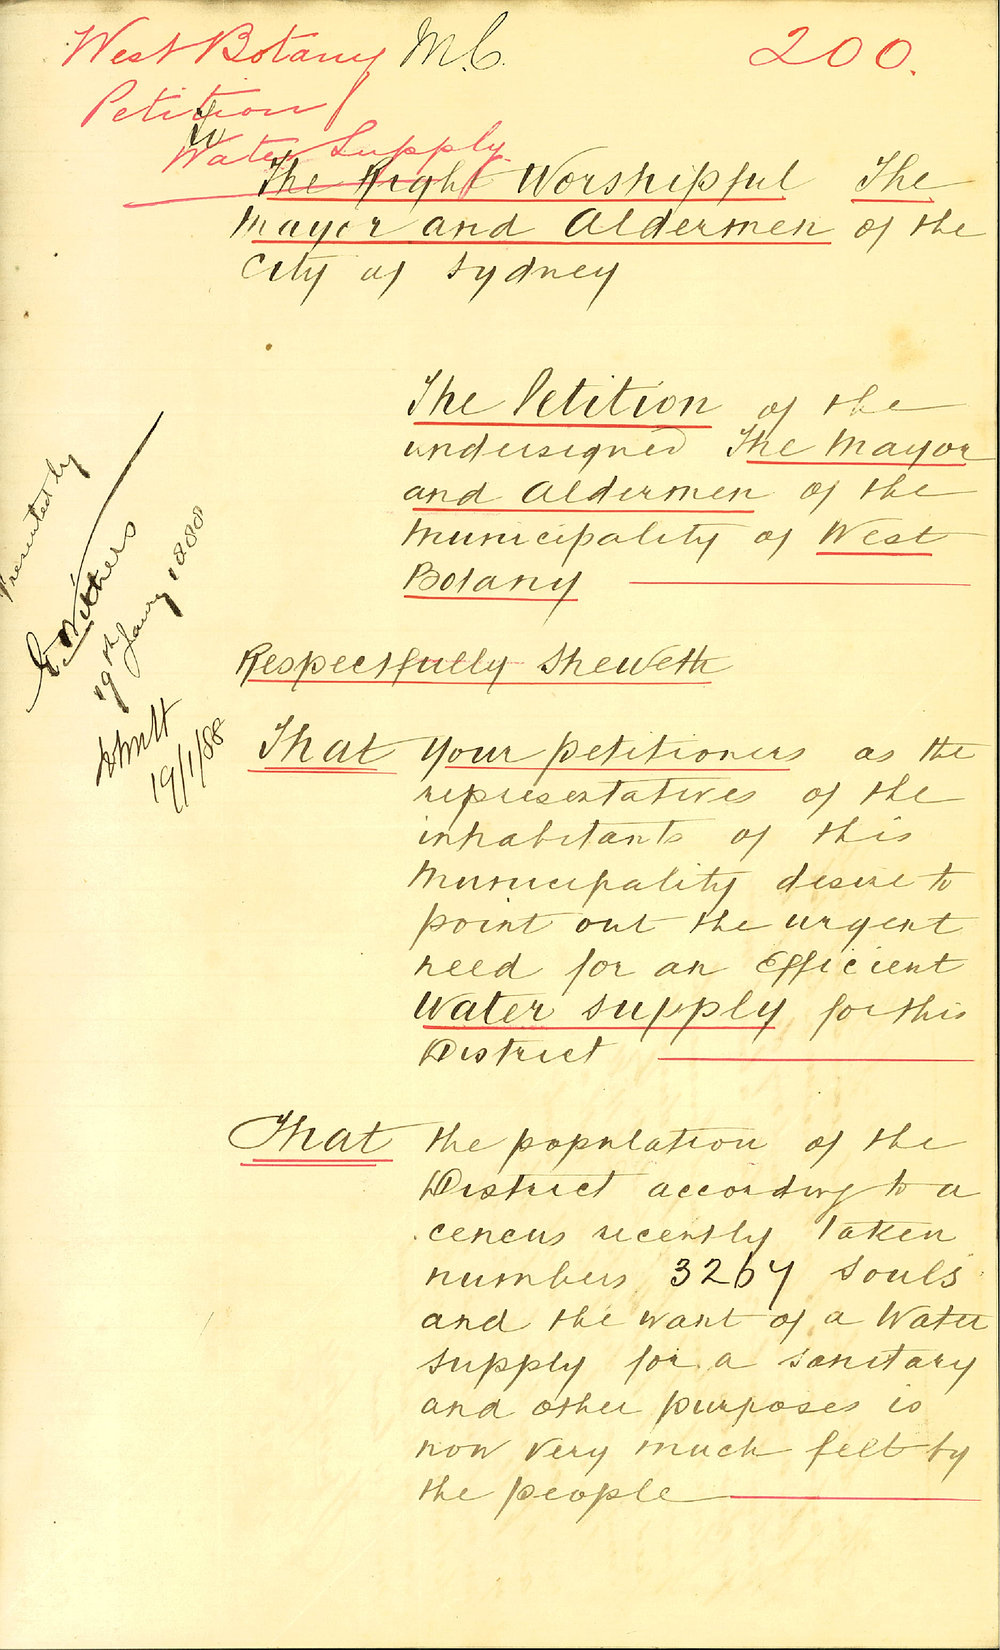 West Botany M.C. 200.
Petition
Water Supply
To
The Right Worshipful The
Mayor and Aldermen of the
City of Sydney
The Petition of the
undersigned The Mayor
and Aldermen of the
Municipality of West
Botany
Presented by
E. Withers
19th Jany 1888
19/1/88
Respectfully Sheweth
That your petitioners as the
representatives of the
inhabitants of this
Municipality desire to
point out the urgent
need for an Efficient
Water supply for this
District
That the population of the
District according to a
cencus recently taken
numbers 3267 souls
and the want of a Water
supply for a sanitary
and other purposes is
now very much felt by
the people